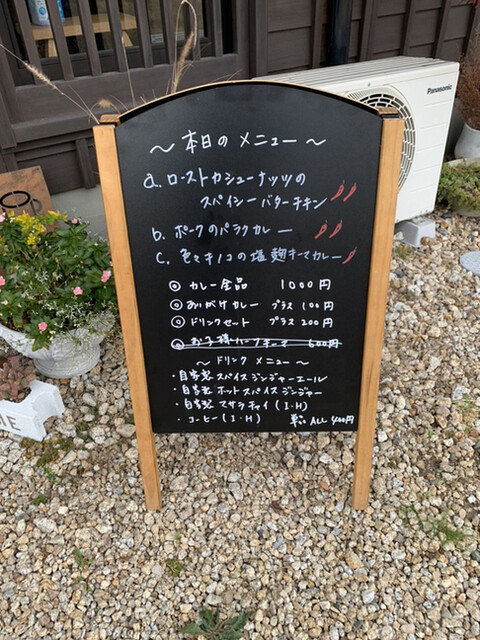 Panasonic
〜本日のメニュー〜
a. ローストカシューナッツの
スパイシーバターチキン
b. ポークのパラクカレー
C. 色々キノコの塩麹キーマカレー
◎ カレー全品 1000円
◎ あいがけカレー プラス 100円
◎ ドリンクセット プラス 200円
◎ お子様ハーフキーマ 600円
〜ドリンクメニュー〜
・自家製 スパイスジンジャーエール
・自家製 ホットスパイスジンジャー
・自家製 マサラチャイ (I・H)
・コーヒー (I・H) 単品 ALL 400円